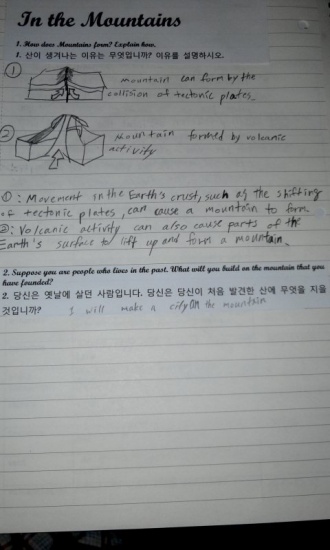 In the Mountains
1. How does Mountains form? Explain how.
1. 산이 생겨나는 이유는 무엇입니까? 이유를 설명하시오.
① mountain can form by the
collision of tectonic plates.
② Mountain formed by volcanic
activity
①: Movement in the Earth's crust, such as the shifting
of tectonic plates, can cause a mountain to form
②: Volcanic activity can also cause parts of the
Earth's surface to lift up and form a mountain.
2. Suppose you are people who lives in the past. What will you build on the mountain that you
have founded?
2. 당신은 옛날에 살던 사람입니다. 당신은 당신이 처음 발견한 산에 무엇을 지을
것입니까? I will make a city on the mountain